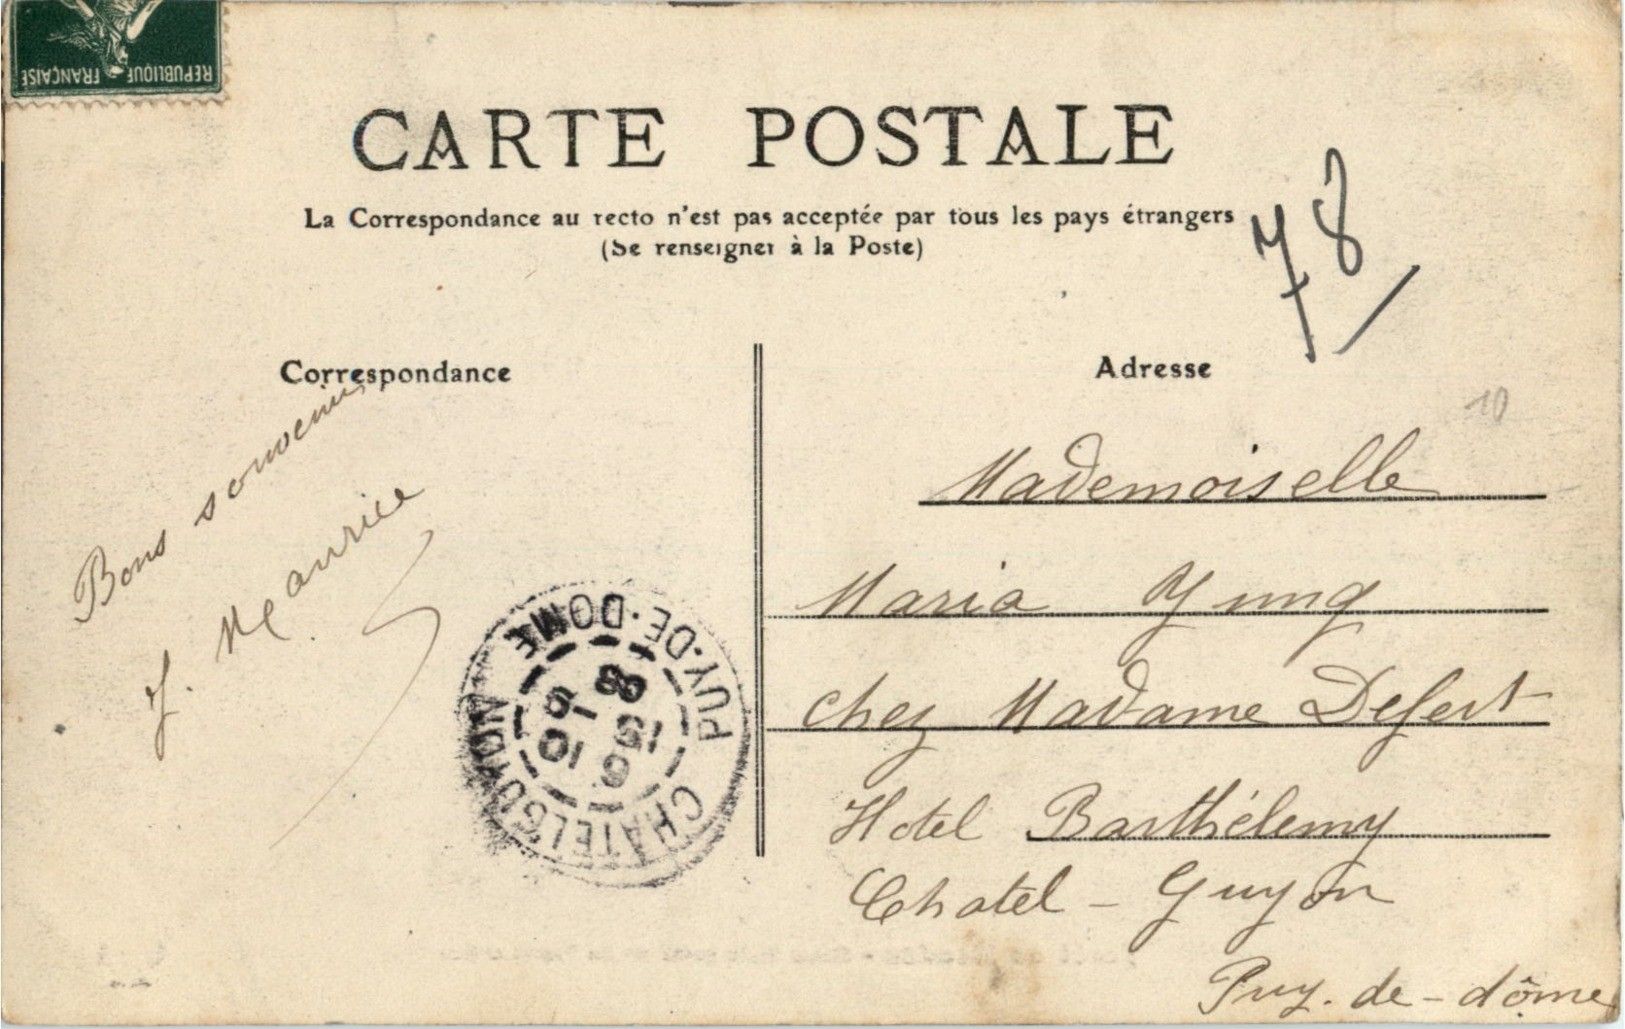 REPUBLIQUE FRANÇAISE
CARTE POSTALE
La Correspondance au recto n'est pas acceptée par tous les pays étrangers
(Se renseigner à la Poste)
78
Correspondance
Bons souvenirs
J. Maurice
CHATELGUYON PUY-DE-DOME
Adresse
10
Mademoiselle
Maria Yung
chez Madame Defert
Hotel Barthélemy
Chatel - Guyon
Puy-de-dôme